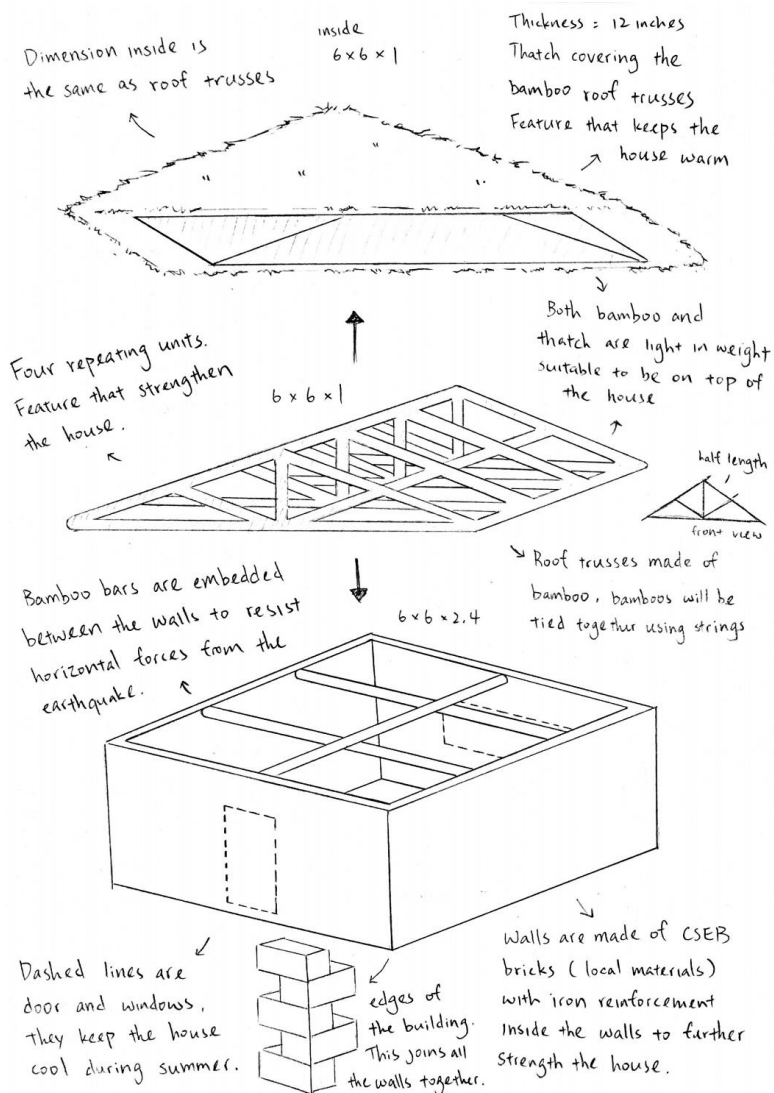 Dimension inside is
the same as roof trusses
inside
6x6x1
Thickness = 12 inches
Thatch covering the
bamboo roof trusses
Feature that keeps the
house warm
Both bamboo and
thatch are light in weight
suitable to be on top of
the house
Four repeating units.
Feature that strengthen
the house.
6x6x1
half length
front view
Roof trusses made of
bamboo, bamboos will be
tied together using strings
Bamboo bars are embedded
between the walls to resist
horizontal forces from the
earthquake.
6x6x2.4
Dashed lines are
door and windows,
they keep the house
cool during summer.
edges of
the building.
This joins all
the walls together.
Walls are made of CSEB
bricks (local materials)
with iron reinforcement
inside the walls to further
strength the house.